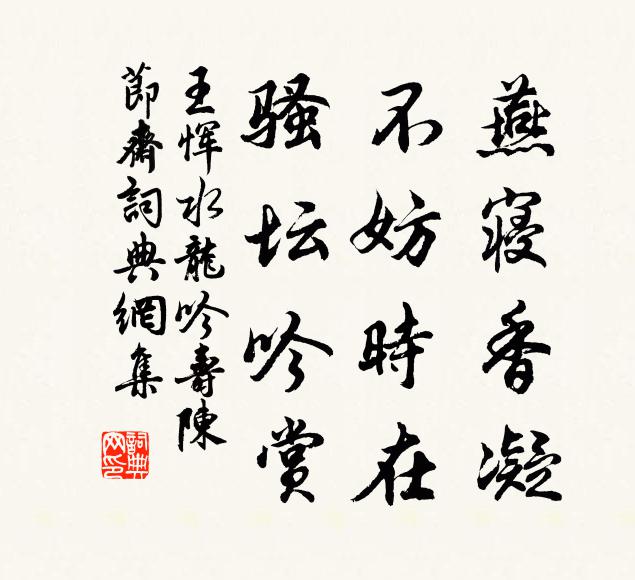 燕寝香凝
不妨時在
骚坛吟赏
王恽水龍吟壽陳
節齋詞典網集
詞典网印